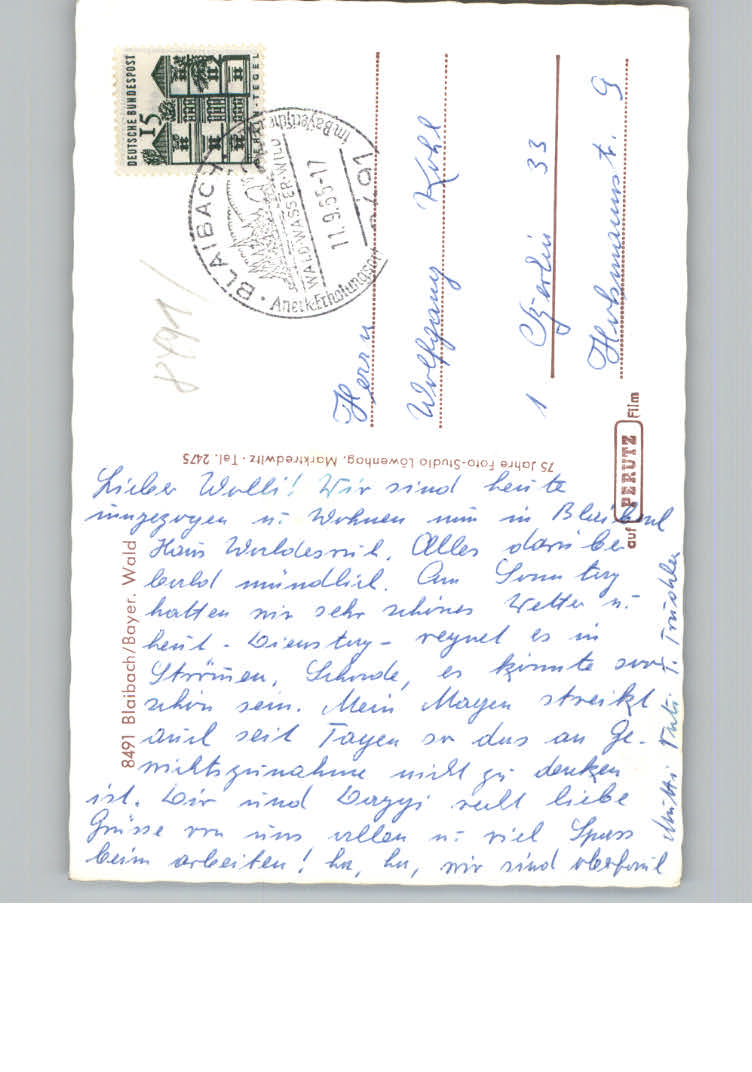 DEUTSCHE BUNDESPOST
15
BERLIN-TEGEL
BLAIBACH
im Bayerischen
WALD-WASSER-WILD
11.9.65-17
8491
Anerk. Erholungsort
8491
Herrn
Wolfgang Kohl
1 Berlin 33
9
75 Jahre Foto-Studio Löwenhag, Marktredwitz · Tel. 2475
auf PERUTZ Film
8491 Blaibach/Bayer. Wald
Lieber Wolli! Wir sind heute
umgezogen u. wohnen nun in Blaibach
Haus Waldesruh. Alles darüber
bald mündlich. Am Sonntag
hatten wir sehr schönes Wetter u.
heut - Dienstag - regnet es in
Strömen, Schade, es könnte so
schön sein. Mein Magen streikt
auch seit Tagen so das an Ge-
wichtszunahme nicht zu denken
ist. Dir und recht liebe
Grüsse von uns allen u. viel Spass
beim arbeiten! ha, ha, wir sind oberfaul
Mutti Vati T.